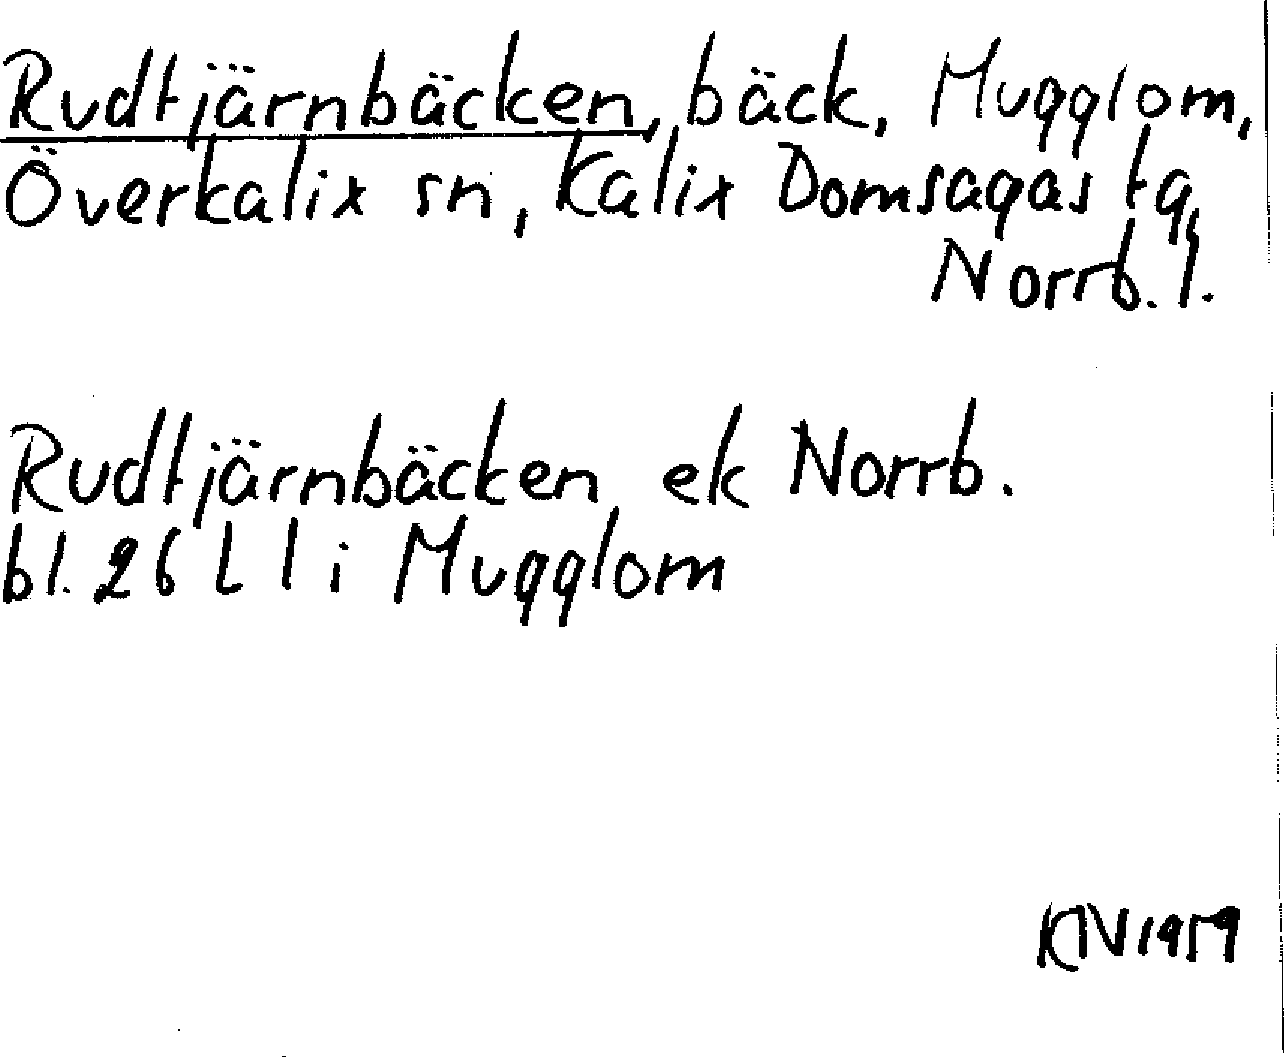 Rudtjärnbäcken, bäck, Mugglom,
Överkalix sn, Kalix Domsagas tg,
Norrb. l.
Rudtjärnbäcken ek Norrb.
bl. 26 L l i Mugglom
1959